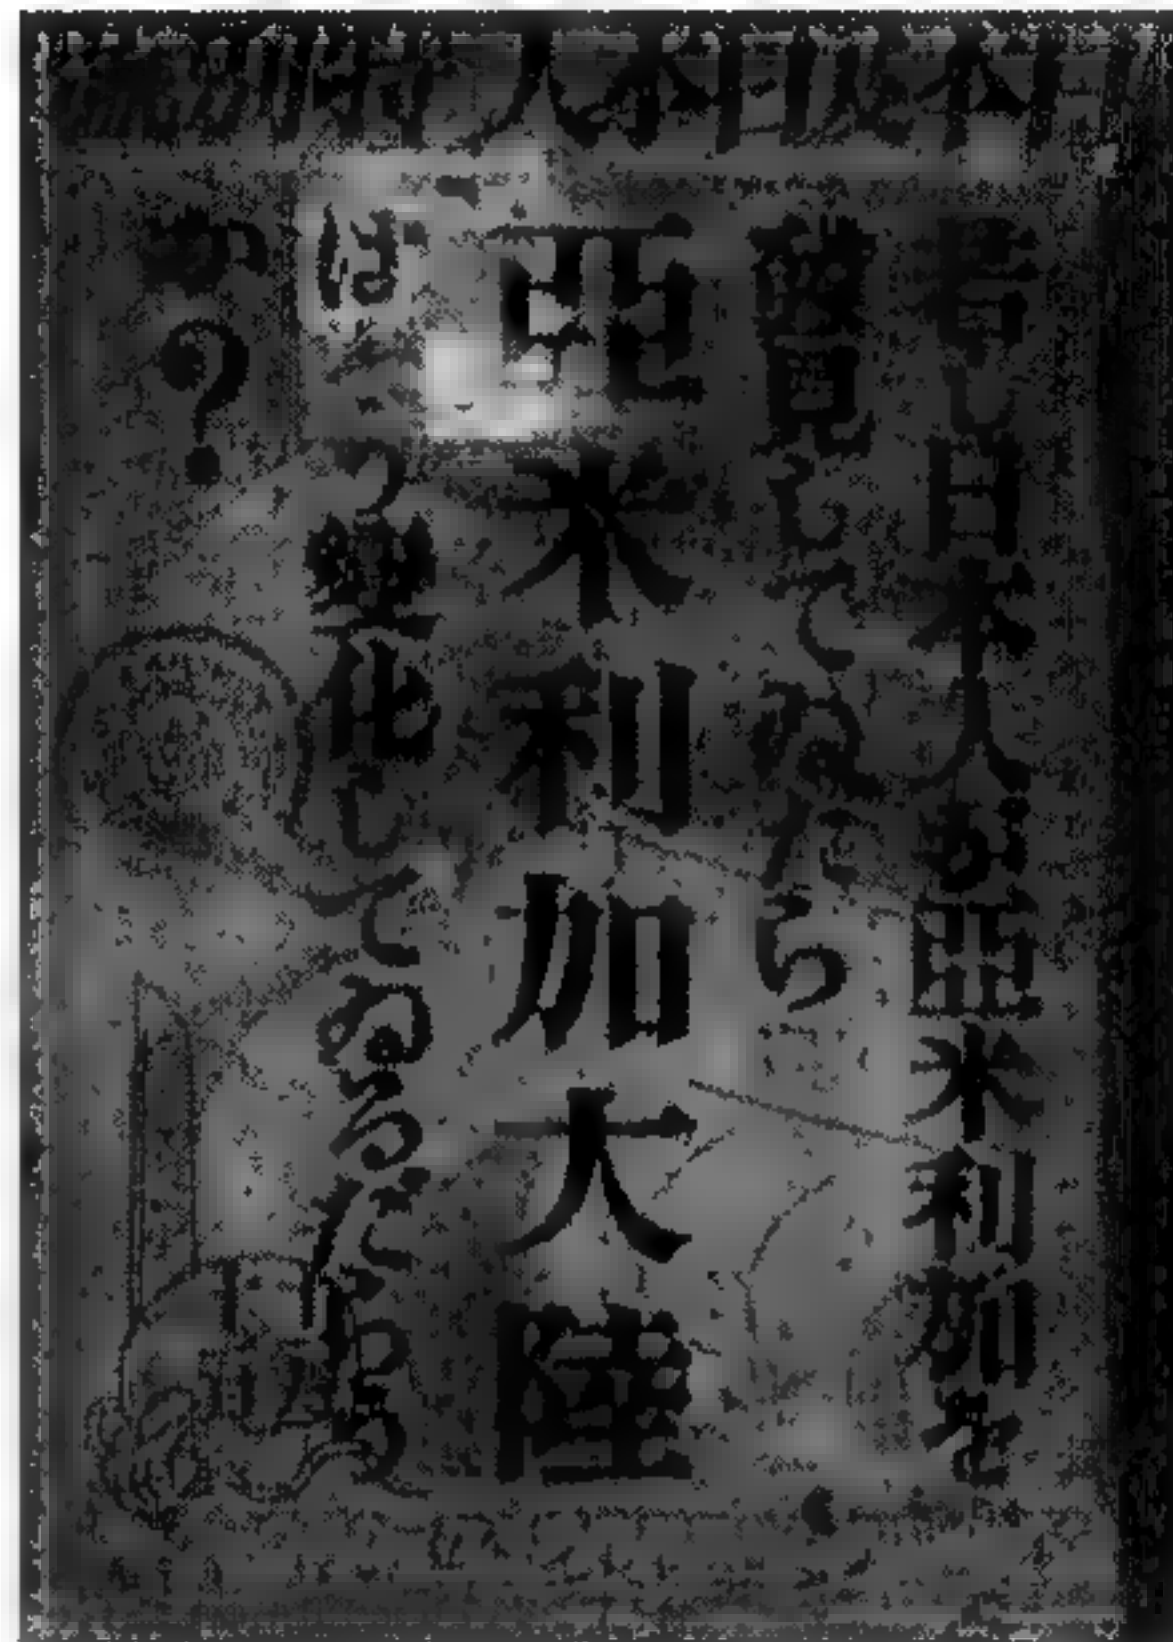 日本及日本人
若し日本人が亞米利加を
發見してゐたら
亞米利加大陸
はどう變化してゐるだらう
か?